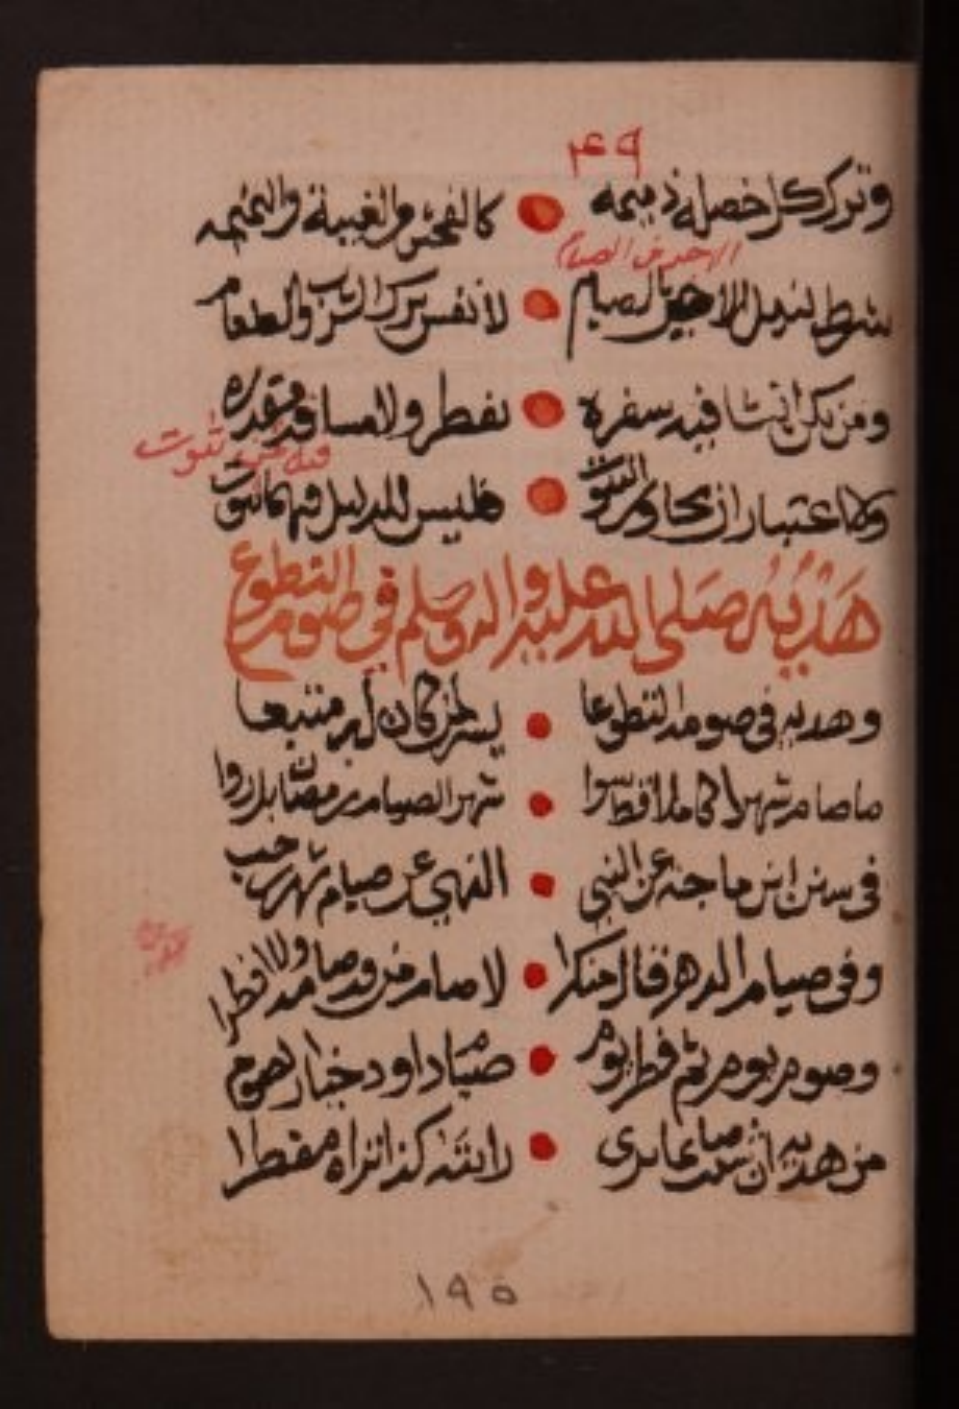 ٤٩
وترك كل خصلة ذميمه • كالفحش والغيبة والنميمه
الاجر في الصيام
شرط لنيل الاجر في الصيام • لا نفس ترك الشرب والطعام
ومن يكن انشا فيه سفره • يفطر ولا مسافة مقدره
ولا اعتبار ان يجاوز البيوت • فليس للدليل فيها ثبوت
فيه من ثبوت
هَدْيُهُ صَلى الله عليه واله وسلم في صوم التطوع
وهديه في صومه التطوعا • يسر لمن كان له متبعا
ما صام شهرا كاملا فيما سوا • شهر الصيام رمضان بل روا
في سنن ابن ماجة عن النبي • النهي عن صيام شهر رجب
وفي صيام الدهر قال منكرا • لا صام من قد صامه ولا افطرا
وصوم يوم ثم فطر يوم • صيام داود خيار الصوم
من هديه ان شئت صائما ترى • او انته كذا تراه مفطرا
١٩٥